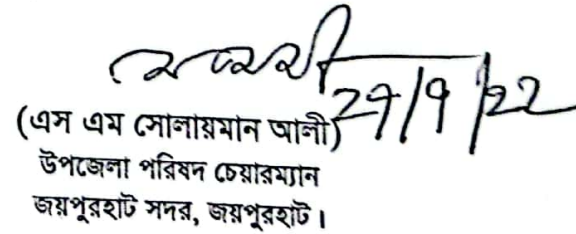 27/9/22
(এস এম সোলায়মান আলী)
উপজেলা পরিষদ চেয়ারম্যান
জয়পুরহাট সদর, জয়পুরহাট।